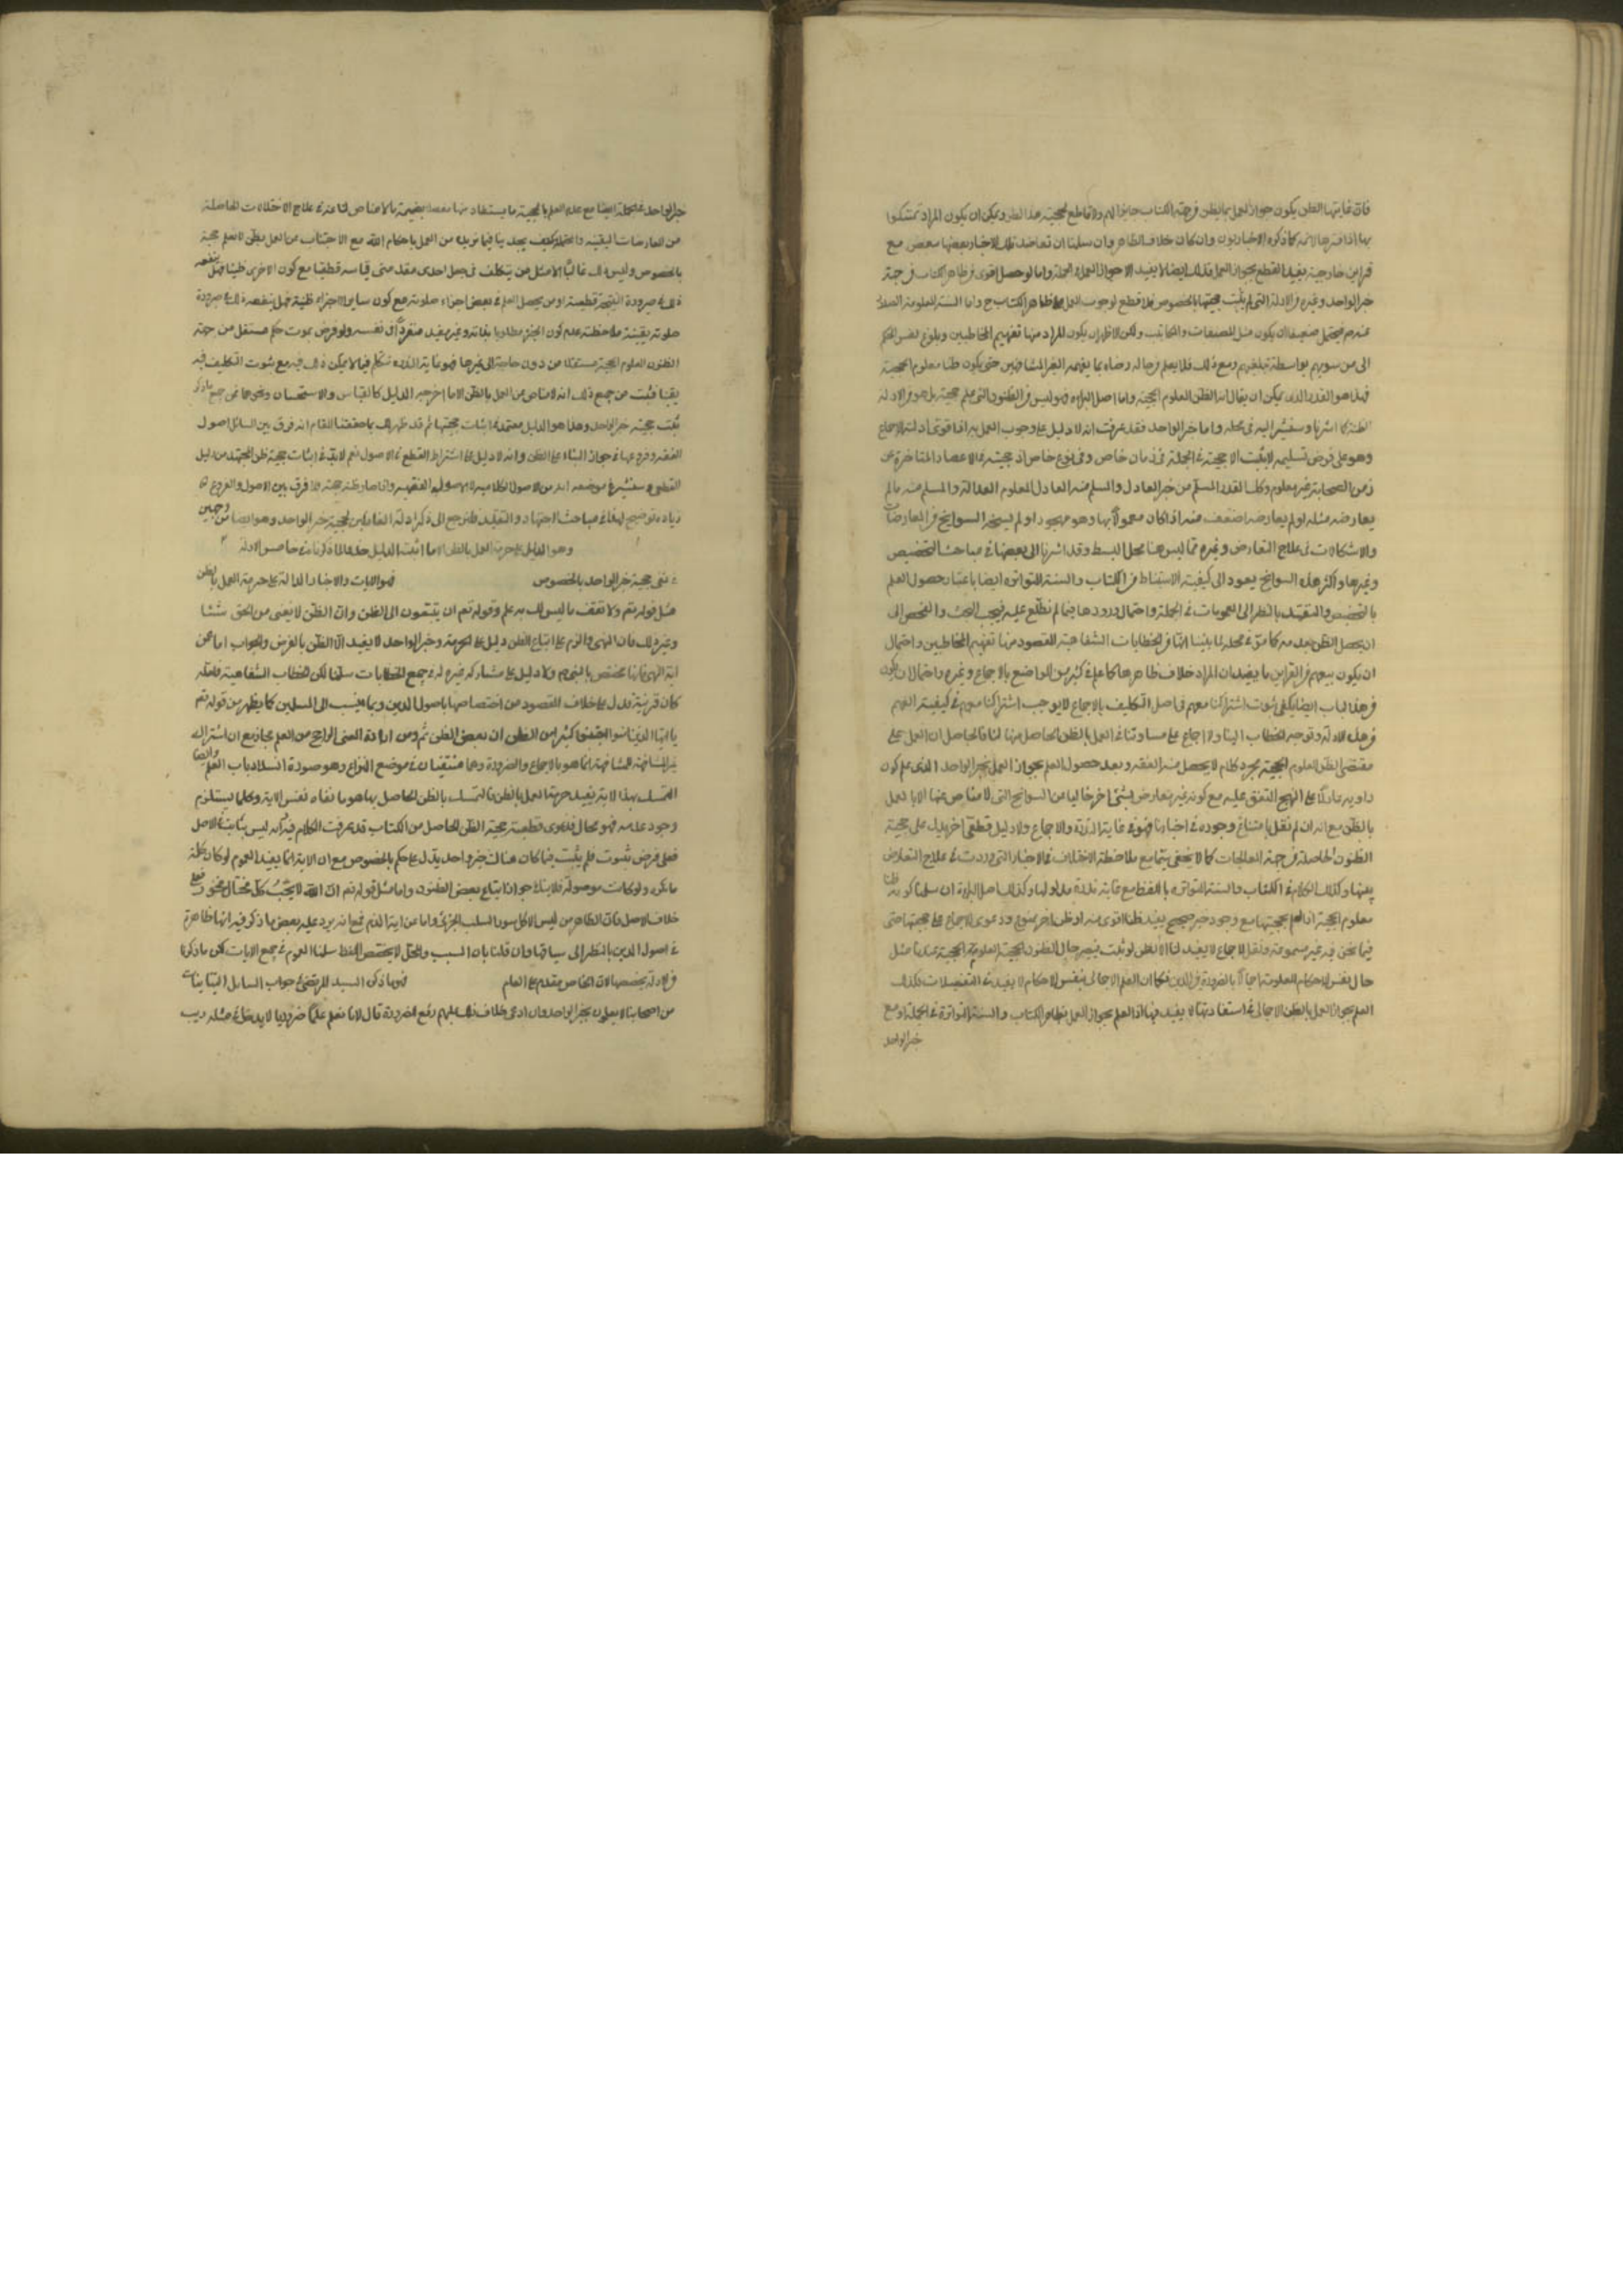 فان غايتها الظن يكون جواز العمل بالظن من جهة الكتاب جايزا لهم ولا قاطع لحجية هذا الظن ويمكن ان يكون المراد تمسكوا
بها اذا فسرها الائمة كما ذكره الاخباريون وان كان خلاف الظاهر وان سلمنا ان تعاضد تلك الاخبار بعضها ببعض مع
قراين خارجية يفيد القطع بجواز العمل فذلك ايضا لا يفيد الا جواز العمل في الجملة واما لو حصل اقوى من ظاهر الكتاب من جهة
خبر الواحد وغيره من الادلة التي لم يثبت حجيتها بالخصوص فلا قطع لوجوب العمل على ظاهر الكتاب ح واما السنة المعلومة الصدور
عنهم فيحتمل ضعيفا ان يكون مثل المصنفات والمكاتيب ولكن الاظهر ان يكون المراد منها تفهيم المخاطبين وبلوغ نفس الحكم
الى من سويهم بواسطة تبليغهم ومع ذلك فلا يعلم من حاله رضاه بما يفهمه الغير المشافهين حتى يكون ظنا معلوم الحجية
فهذا هو القدر الذي يمكن ان يقال انه الظن المعلوم الحجية واما اصل البراءة فهو ليس من الظنون التي علم حجيته بل هو من الادلة
الظنية كما اشرنا وسنشير اليه في محله واما خبر الواحد فقد عرفت انه لا دليل على وجوب العمل به اذ اقوى ادلته الاجماع
وهو على فرض تسليمه لا يثبت الا حجيته في الجملة في زمان خاص وفي نوع خاص اذ حجيته في الاعصار المتاخرة عن
زمن الصحابة غير معلوم وكذا القدر المسلم من خبر العادل والمسلم منه العادل المعلوم العدالة والمسلم منه ما لم
يعارضه مثله او لم يعارضه اضعف منه اذا كان معمولا بها وهو مهجورا ولم يسنحه السوانح من المعارضات
والاشكالات في علاج التعارض وغيره مما ليس هنا محل البسط وقد اشرنا الى بعضها في مباحث التخصيص
وغيرها واكثر هذه السوانح يعود الى كيفية الاستنباط من الكتاب والسنة المتواترة ايضا باعتبار حصول العلم
بالتخصيص والتقييد بالنظر الى العمومات في الجملة واحتمال ورودها فيما لم نطلع عليه فيجب البحث والتفحص الى
ان يحصل الظن بعدمه كما مر في محله لما بينا انها من الخطابات الشفاهية المقصود منها تفهيم المخاطبين واحتمال
ان يكون بينهم من القراين ما يفيد ان المراد خلاف ظاهرها كما علم في كثير من المواضع بالاجماع وغيره واحتمال ان يكون
من هذا الباب ايضا يكفي ثبوت اشتراكنا معهم في اصل التكليف بالاجماع لا يوجب اشتراكنا معهم في كيفية الفهم
من هذه الادلة وتوجه الخطاب الينا ولا اجماع على مساوتنا في العمل بالظن الحاصل منها لنا فالحاصل ان العمل على
مقتضى الظن المعلوم الحجية بمجرد كلام لا يحصل منه الفقه وبعد حصول العلم بجواز العمل بخبر الواحد الذي علم كون
راويه عادلا على النهج المتفق عليه مع كونه غير معارض بشئ اخر خاليا من السوانح التي لا مناص عنها الا بالعمل
بالظن مع انه ان لم نقل بامتناع وجوده في اخبارنا فهو في غاية الندرة والاجماع ولا دليل قطعي اخر يدل على حجية
الظنون الحاصلة من جهة المعالجات كما لا يخفى سيما مع ملاحظة الاختلاف في الاخبار التي وردت في علاج التعارض
بينها وكذلك الكلام في الكتاب والسنة المتواترة باللفظ مع غاية ندرة مدلولها وكذلك اصل البراءة ان سلمنا كونه ظنا
معلوم الحجية اذ العلم بحجيتها مع وجود خبر صحيح يفيد ظنا اقوى منه او ظن اخر ممنوع ودعوى الاجماع على حجيتها حتى
فيما نحن فيه غير مسموعة ونقل الاجماع لا يفيد لنا الا الظن لو ثبت فيصير حال الظنون الحجية المعلومة الحجية عندنا مثل
حال نفس الاحكام المعلومة اجمالا بالضرورة من الدين فكما ان العلم الاجمالي بنفس الاحكام لا يفيد في التفصيلات فكذلك
العلم بجواز العمل بالظن الاجمالي في استفادتها لا يفيد فيها اذ العلم بجواز العمل بظاهر الكتاب والسنة المتواترة في الجملة او مع
خبر الواحد
خبر الواحد في الجملة ايضا مع عدم العلم بالحجية ما يستفاد منها مفصلا بضميمة ما لا مناص لنا عنه في علاج الاختلالات الحاصلة
من المعارضات اليقينية والمحتملة كيف يجدينا فيما نريده من العمل باحكام الله مع الاجتناب عن العمل بظن لا نعلم حجيته
بالخصوص وليس ذلك غالبا الا مثل من يتكلف في جعل احدى مقدمتي قياسه قطعيا مع كون الاخرى ظنيا فهل ينفعه
ذلك في صيرورة النتيجة قطعية او من يحصل العلم في بعض اجزاء صلوته مع كون ساير الاجزاء ظنية فهل ينفعه ذلك في صيرورة
صلوته يقينية ملاحظة عدم كون الجزء مطلوبا بذاته وغير مفيد منفردا في نفسه ولو فرض ثبوت حكم مستقل من جهة
الظنون المعلوم الحجية مستقلا من دون حاجة الى غيرها فهو في غاية الندرة نتكلم فيما لا يمكن ذلك فيه مع ثبوت التكليف فيه
يقينا فثبت من جميع ذلك انه لا مناص عن العمل بالظن الا ما اخرجه الدليل كالقياس والاستحسان ونحوهما فمن جميع ما ذكر
ثبت حجية خبر الواحد وهذا هو الدليل المعتمد في اثبات حجيتها ثم قد ظهر لك بما حققنا المقام انه لا فرق بين مسائل اصول
الفقه وفروعها في جواز البناء على الظن وانه لا دليل على اشتراط القطع في الاصول نعم لا بد في اثبات حجية ظن المجتهد من دليل
القطعي وسنشير في موضعه انه من الاصول الكلامية لا الاصول الفقهية واذا صار ظنه حجة فلا فرق بين الاصول والفروع
زيادة توضيح لهذا في مباحث الاجتهاد والتقليد فلنرجع الى ذكر ادلة النافين لحجية خبر الواحد وهو ايضا من وجهين
وهو الدليل على حرمة العمل بالظن الا ما اثبته الدليل خلافا لما ذكرنا في خامس الادلة
في نفي حجية خبر الواحد بالخصوص فهو الايات والاخبار الدالة على حرمة العمل بالظن
مثل قوله تعم ولا تقف ما ليس لك به علم وقوله تعم ان يتبعون الا الظن وان الظن لا يغني من الحق شيئا
وغير ذلك فان النهي والذم على اتباع الظن دليل على الحرمة وخبر الواحد لا يفيد الا الظن بالفرض والجواب اما عن
اية النهي فانها مختص بالنبي ص ولا دليل على مشاركة غيره له في جميع الخطابات سلمنا لكن الخطاب الشفاهية فلعله
كان قرينة تدل على خلاف المقصود من اختصاصها باصول الدين وبما ينسب الى المسلمين كما يظهر من قوله تعم
يا ايها الذين امنوا اجتنبوا كثيرا من الظن ان بعض الظن اثم ومن ارادة المعنى الراجح من العلم مجاز مع ان اشتراك
غير المشافهين للمشافهين انما هو بالاجماع والضرورة وهما منتفيان في موضع النزاع وهو صورة انسداد باب العلم وايضا
التمسك بهذا الاية يفيد حرمة العمل بالظن فالتمسك بالظن الحاصل بها هو ما نفاه نفس الاية وكلما يستلزم
وجوده عدمه فهو محال فدعوى قطعية حجية الظن الحاصل من الكتاب قد عرفت الكلام فيه وانه ليس بثابت في الاصل
فعلى فرض ثبوت فلم يثبت فيما كان هناك خبر واحد يدل على حكم بالخصوص مع ان الاية انما يفيد العموم لو كان كلمة
ما نكرة ولو كانت موصولة فلا ينافي جواز اتباع بعض الظنون واما مثل قوله تعم ان الله لا يحب كل مختال فخور فعلى
خلاف الاصل فان الظاهر من ليس الا كل سور السلب الجزئي واما عن اية الذم فمع انه يرد عليه بعض ما ذكر فيه انها ظاهرة
في اصول الدين بالنظر الى سياقها وان قلنا بان السبب والمحل لا يخصص اللفظ سلمنا العموم في جميع الايات لكن ما ذكرنا
من الادلة يخصصها لان الخاص مقدم على العام فهو ما ذكره السيد المرتضى في جواب المسايل التبانيات
من اصحابنا لا يعملون بخبر الواحد وان ادعى خلاف ذلك عليهم دفع للضرورة قال لانا نعلم علما ضروريا لا يدخل في مثله ريب